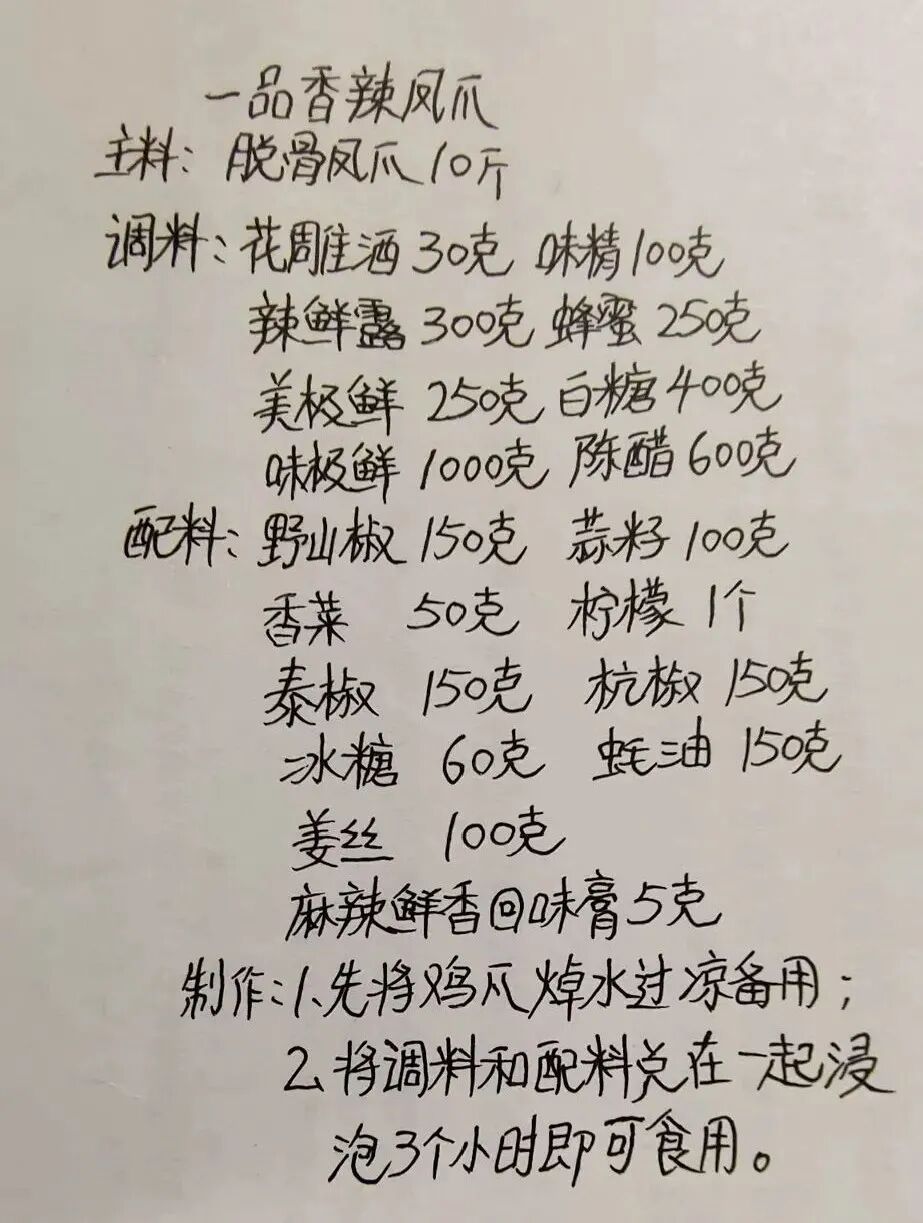 一品香辣凤爪
主料：脱骨凤爪10斤
调料：花雕酒30克 味精100克
辣鲜露300克 蜂蜜250克
美极鲜 250克 白糖400克
味极鲜 1000克 陈醋600克
配料：野山椒 150克 蒜籽100克
香菜 50克 柠檬1个
泰椒 150克 杭椒150克
冰糖 60克 蚝油150克
姜丝 100克
麻辣鲜香回味膏5克
制作：1、先将鸡爪焯水过凉备用；
2、将调料和配料兑在一起浸
泡3个小时即可食用。